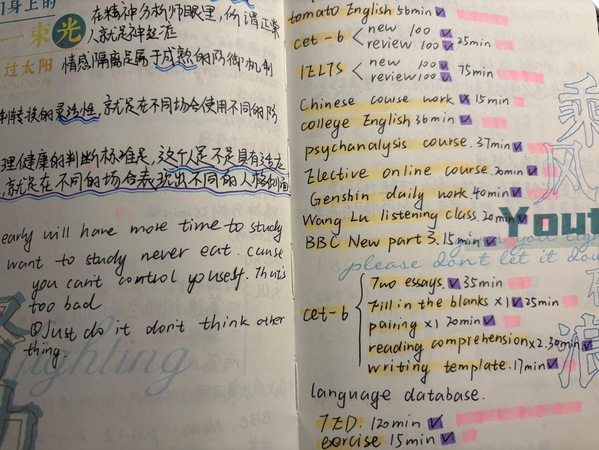 们身上的
一束光
过太阳
在精神分析师眼里,你谓正常
人就是神经症
情感隔离是属于成熟的防御机制
制转换的灵活性,就是在不同场合使用不同的防
理健康的判断标准是,这个人是不是具有适应
,就是在不同的场合表现出不同的人格侧面
early will have more time to study
want to study never eat. cause
you can't control youself. That's
too bad.
②Just do it don't think other
thing.
fighting
tomato English 56min
cet-6 new 100
review 100 25min
IELTS new 100
review 100 75min
Chinese course work 15min
college English 36min
psychanalysis course. 37min
Elective online course. 20min
Genshin daily work. 40min
Wang Lu listening class. 20min
BBC New part 3. 15min
乘风
Yout
please don't let it dow
浪
cet-6 Two essays. 35min
Fill in the blanks x1 25min
pairing x1 20min
reading comprehension x2. 30min
writing template. 17min
language database.
TED. 120min
exercise 15min